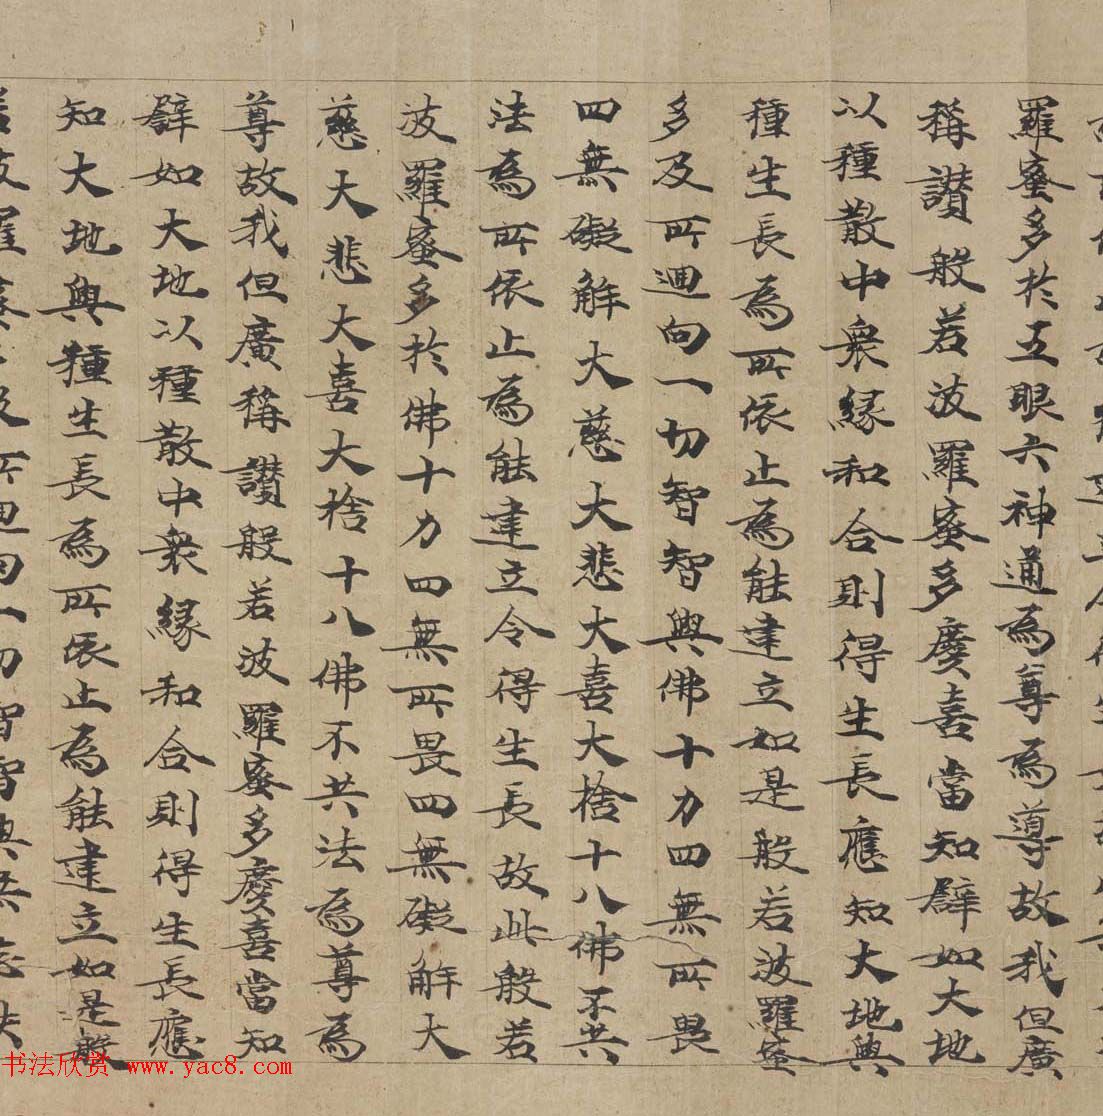 羅蜜多於五眼六神通為尊為導故我但廣
稱讃般若波羅蜜多慶喜當知譬如大地
以種散中衆緣和合則得生長應知大地與
種生長為所依止為能建立如是般若波羅蜜
多及所迴向一切智智與佛十力四無所畏
四無礙解大慈大悲大喜大捨十八佛不共
法為所依止為能建立令得生長故此般若
波羅蜜多於佛十力四無所畏四無礙解大
慈大悲大喜大捨十八佛不共法為尊為
尊故我但廣稱讃般若波羅蜜多慶喜當知
譬如大地以種散中衆緣和合則得生長應
知大地與種生長為所依止為能建立如是般
若波羅蜜多及所迴向一切智智與無忘失
书法欣赏 www.yac8.com